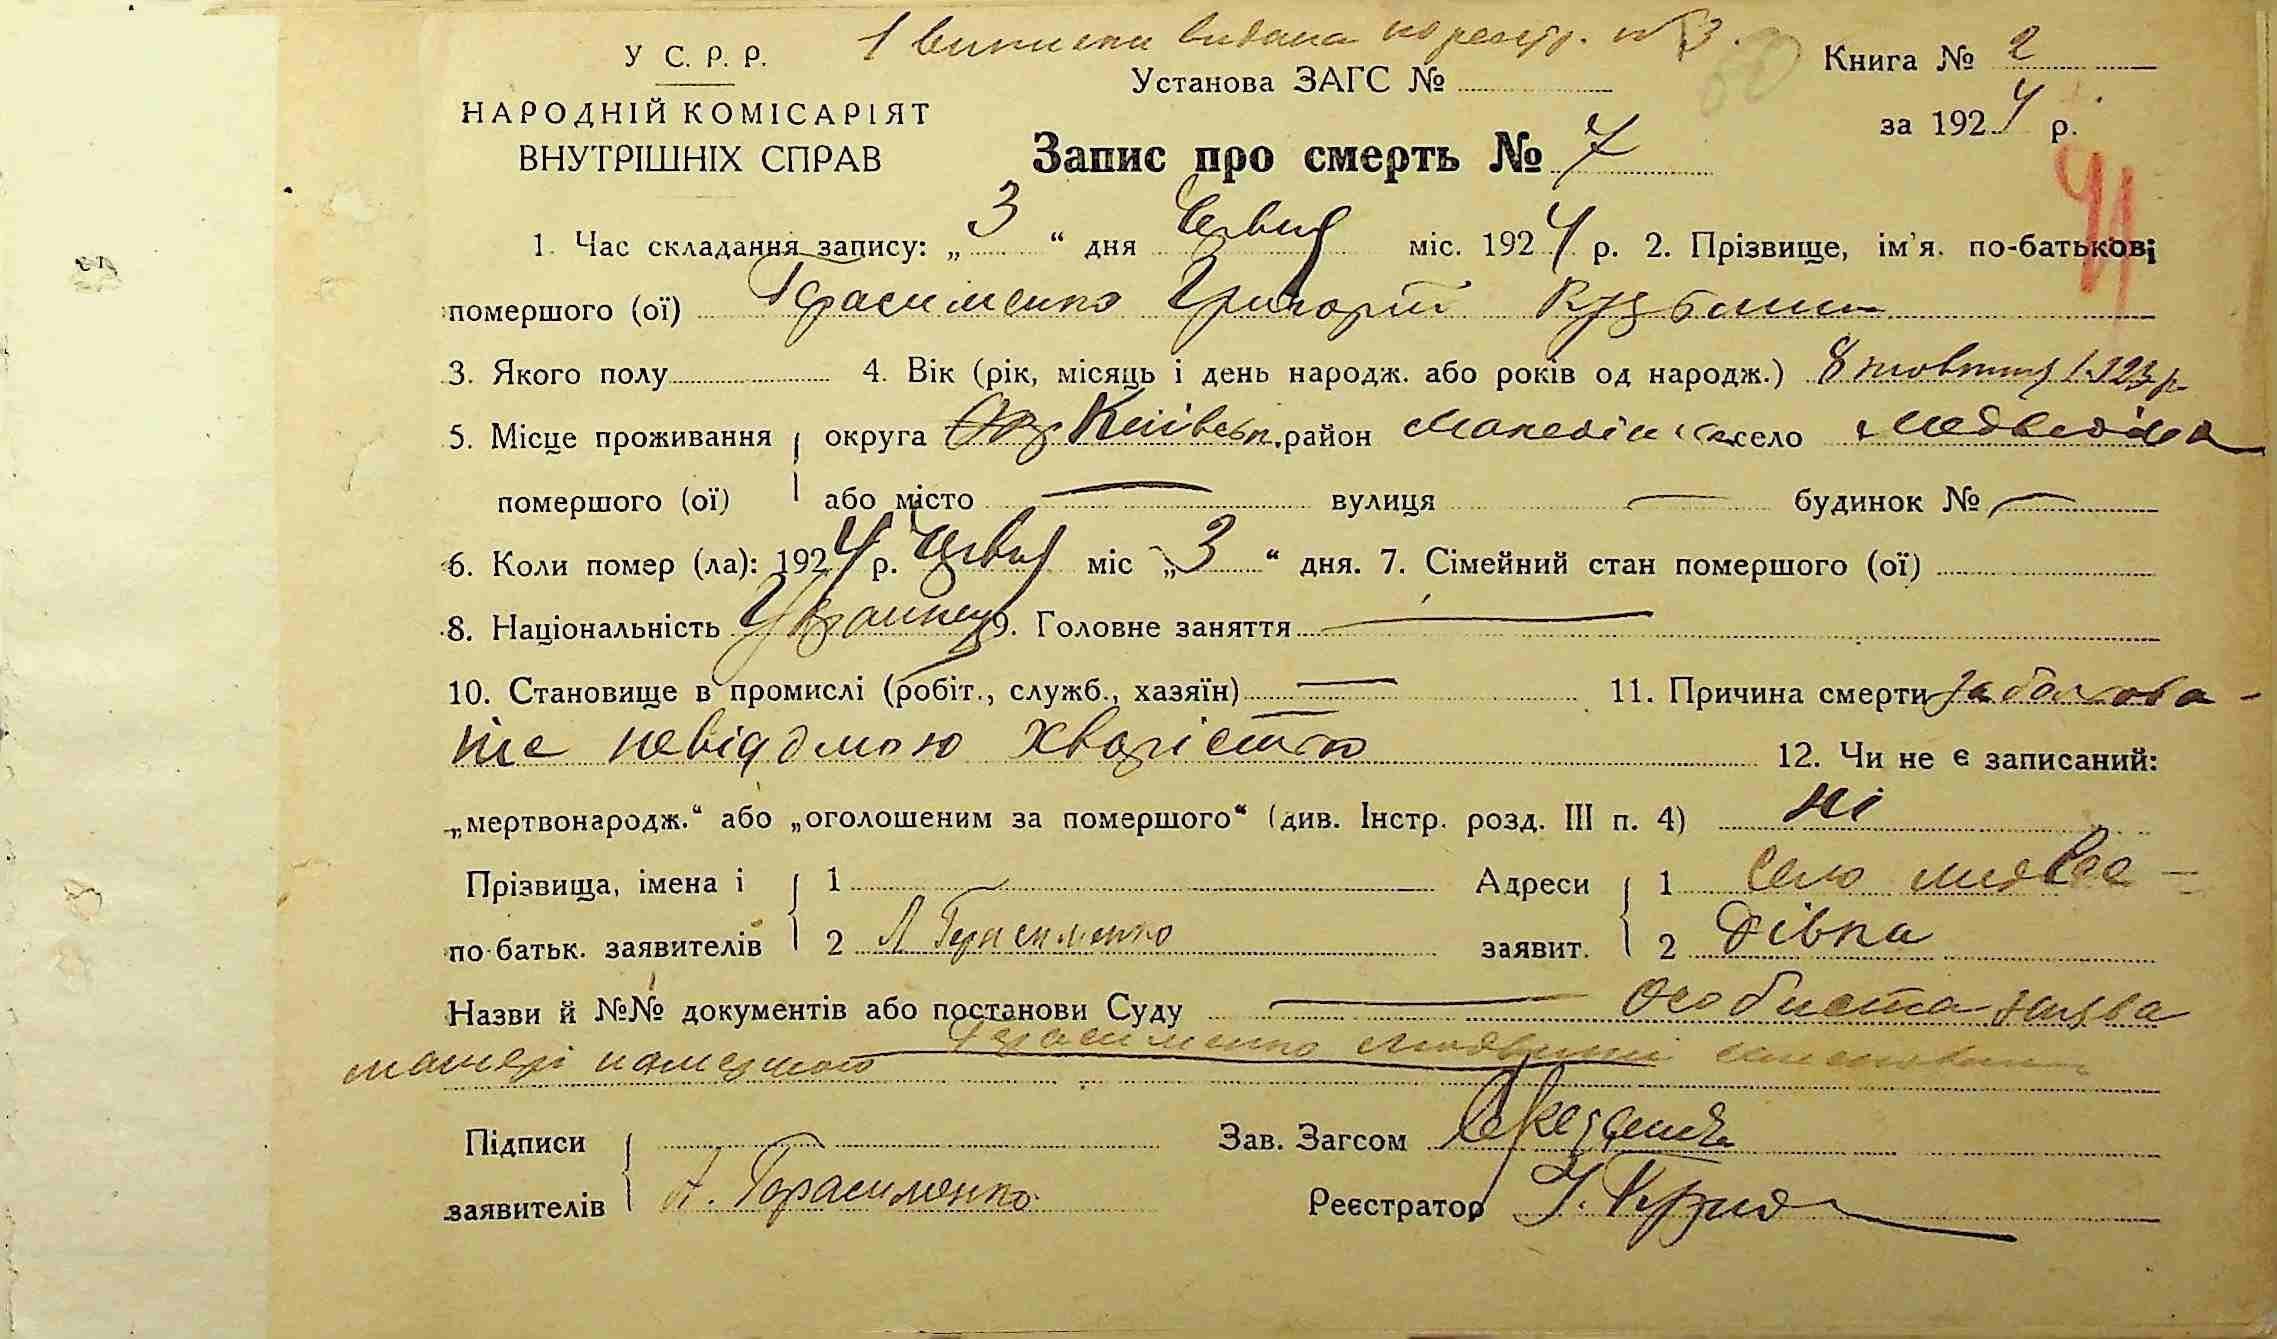 1 виписка видана по реєстр. № 3.
У С. Р. Р.
Книга № 2
Установа ЗАГС №
НАРОДНІЙ КОМІСАРІЯТ
за 1924 р.
ВНУТРІШНІХ СПРАВ
Запис про смерть № 7
41
1. Час складання запису: „ 3 “ дня Червня міс. 1924 р. 2. Прізвище, ім'я. по-батькові
помершого (ої) Герасименко Григорій
3. Якого полу 4. Вік (рік, місяць і день народж. або років од народж.) 8 жовтня 1923 р.
5. Місце проживання округа Київськ. район село Медведівка
помершого (ої) або місто — вулиця — будинок № —
6. Коли помер (ла): 1924 р. Червня міс „ 3 “ дня. 7. Сімейний стан помершого (ої)
8. Національність Украинец 9. Головне заняття —
10. Становище в промислі (робіт., служб., хазяїн) — 11. Причина смерти
невідомою хворістю 12. Чи не є записаний:
„мертвонародж.“ або „оголошеним за помершого“ (див. Інстр. розд. III п. 4) ні
Прізвища, імена і 1 Адреси 1 Село медве-
по-батьк. заявителів 2 Герасименко заявит. 2 дівка
Назви й №№ документів або постанови Суду — Особиста заява
матері Герасименко
Підписи Зав. Загсом
заявителів Герасименко Реєстратор